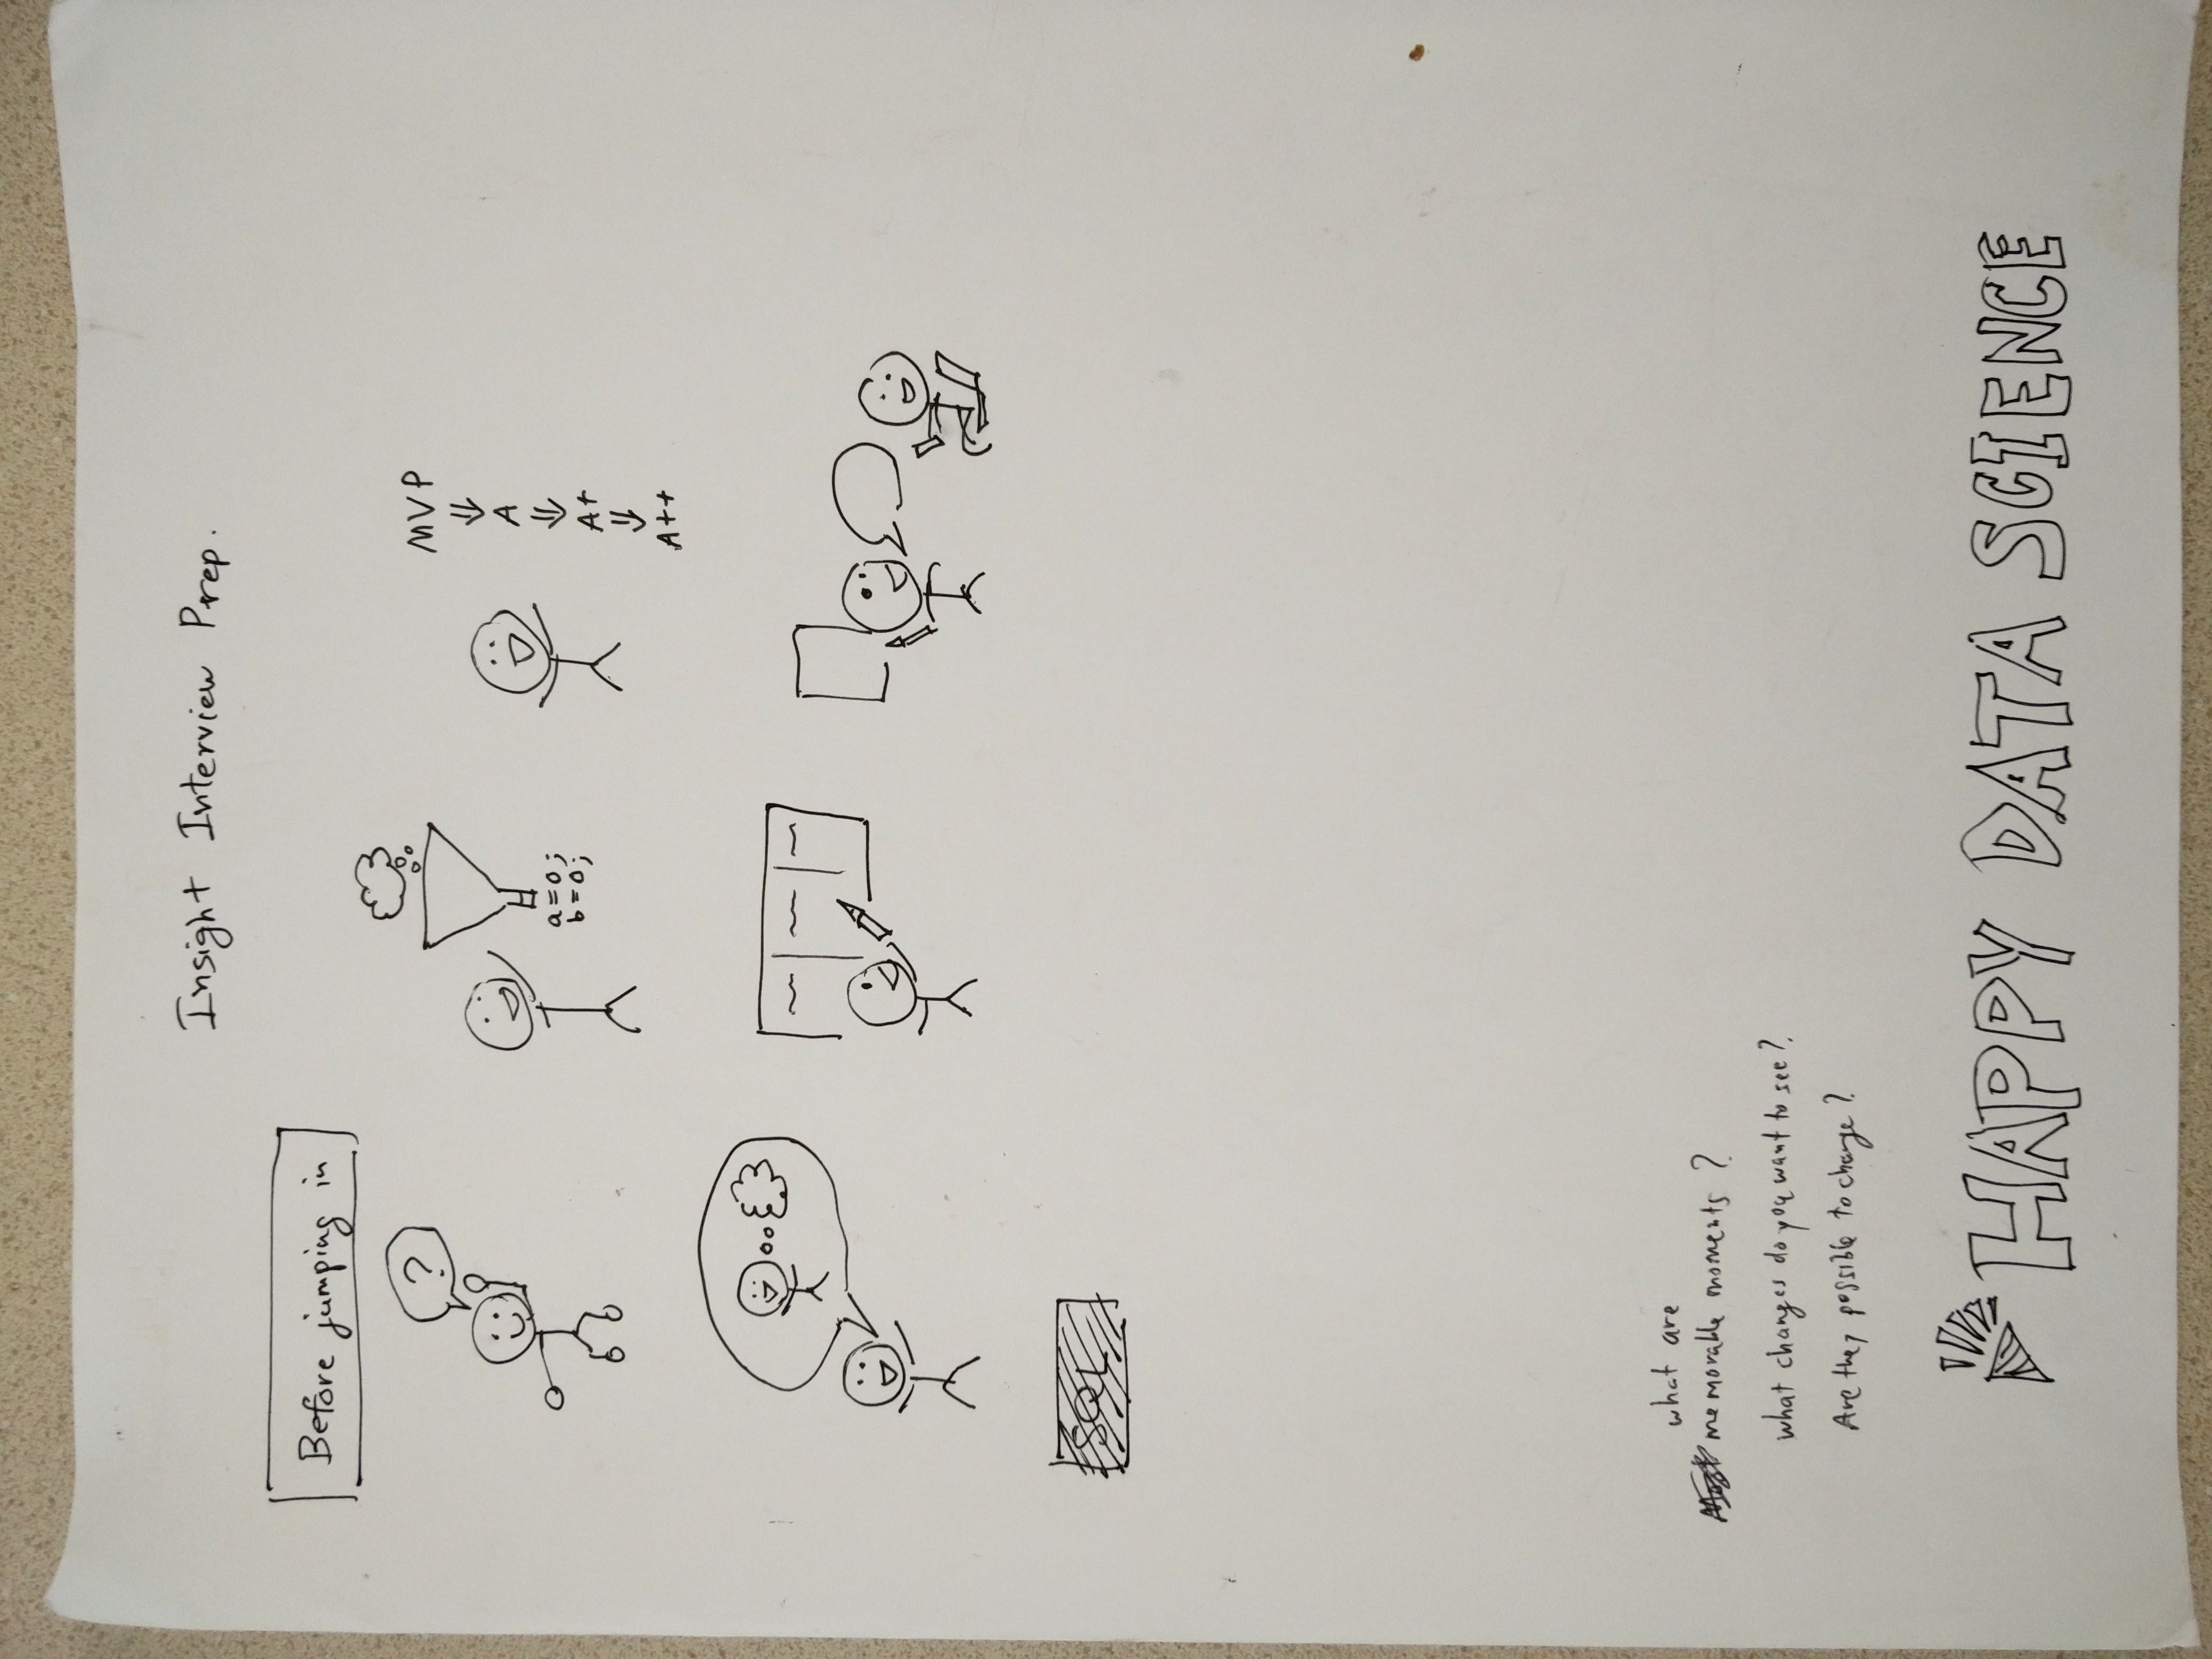 Insight Interview Prep.
Before jumping in
?
a=0;
b=0;
MVP
⇓
A
⇓
A+
⇓
A++
SQL
what are
memorable moments ?
what changes do you want to see ?
Are they possible to change ?
HAPPY DATA SCIENCE